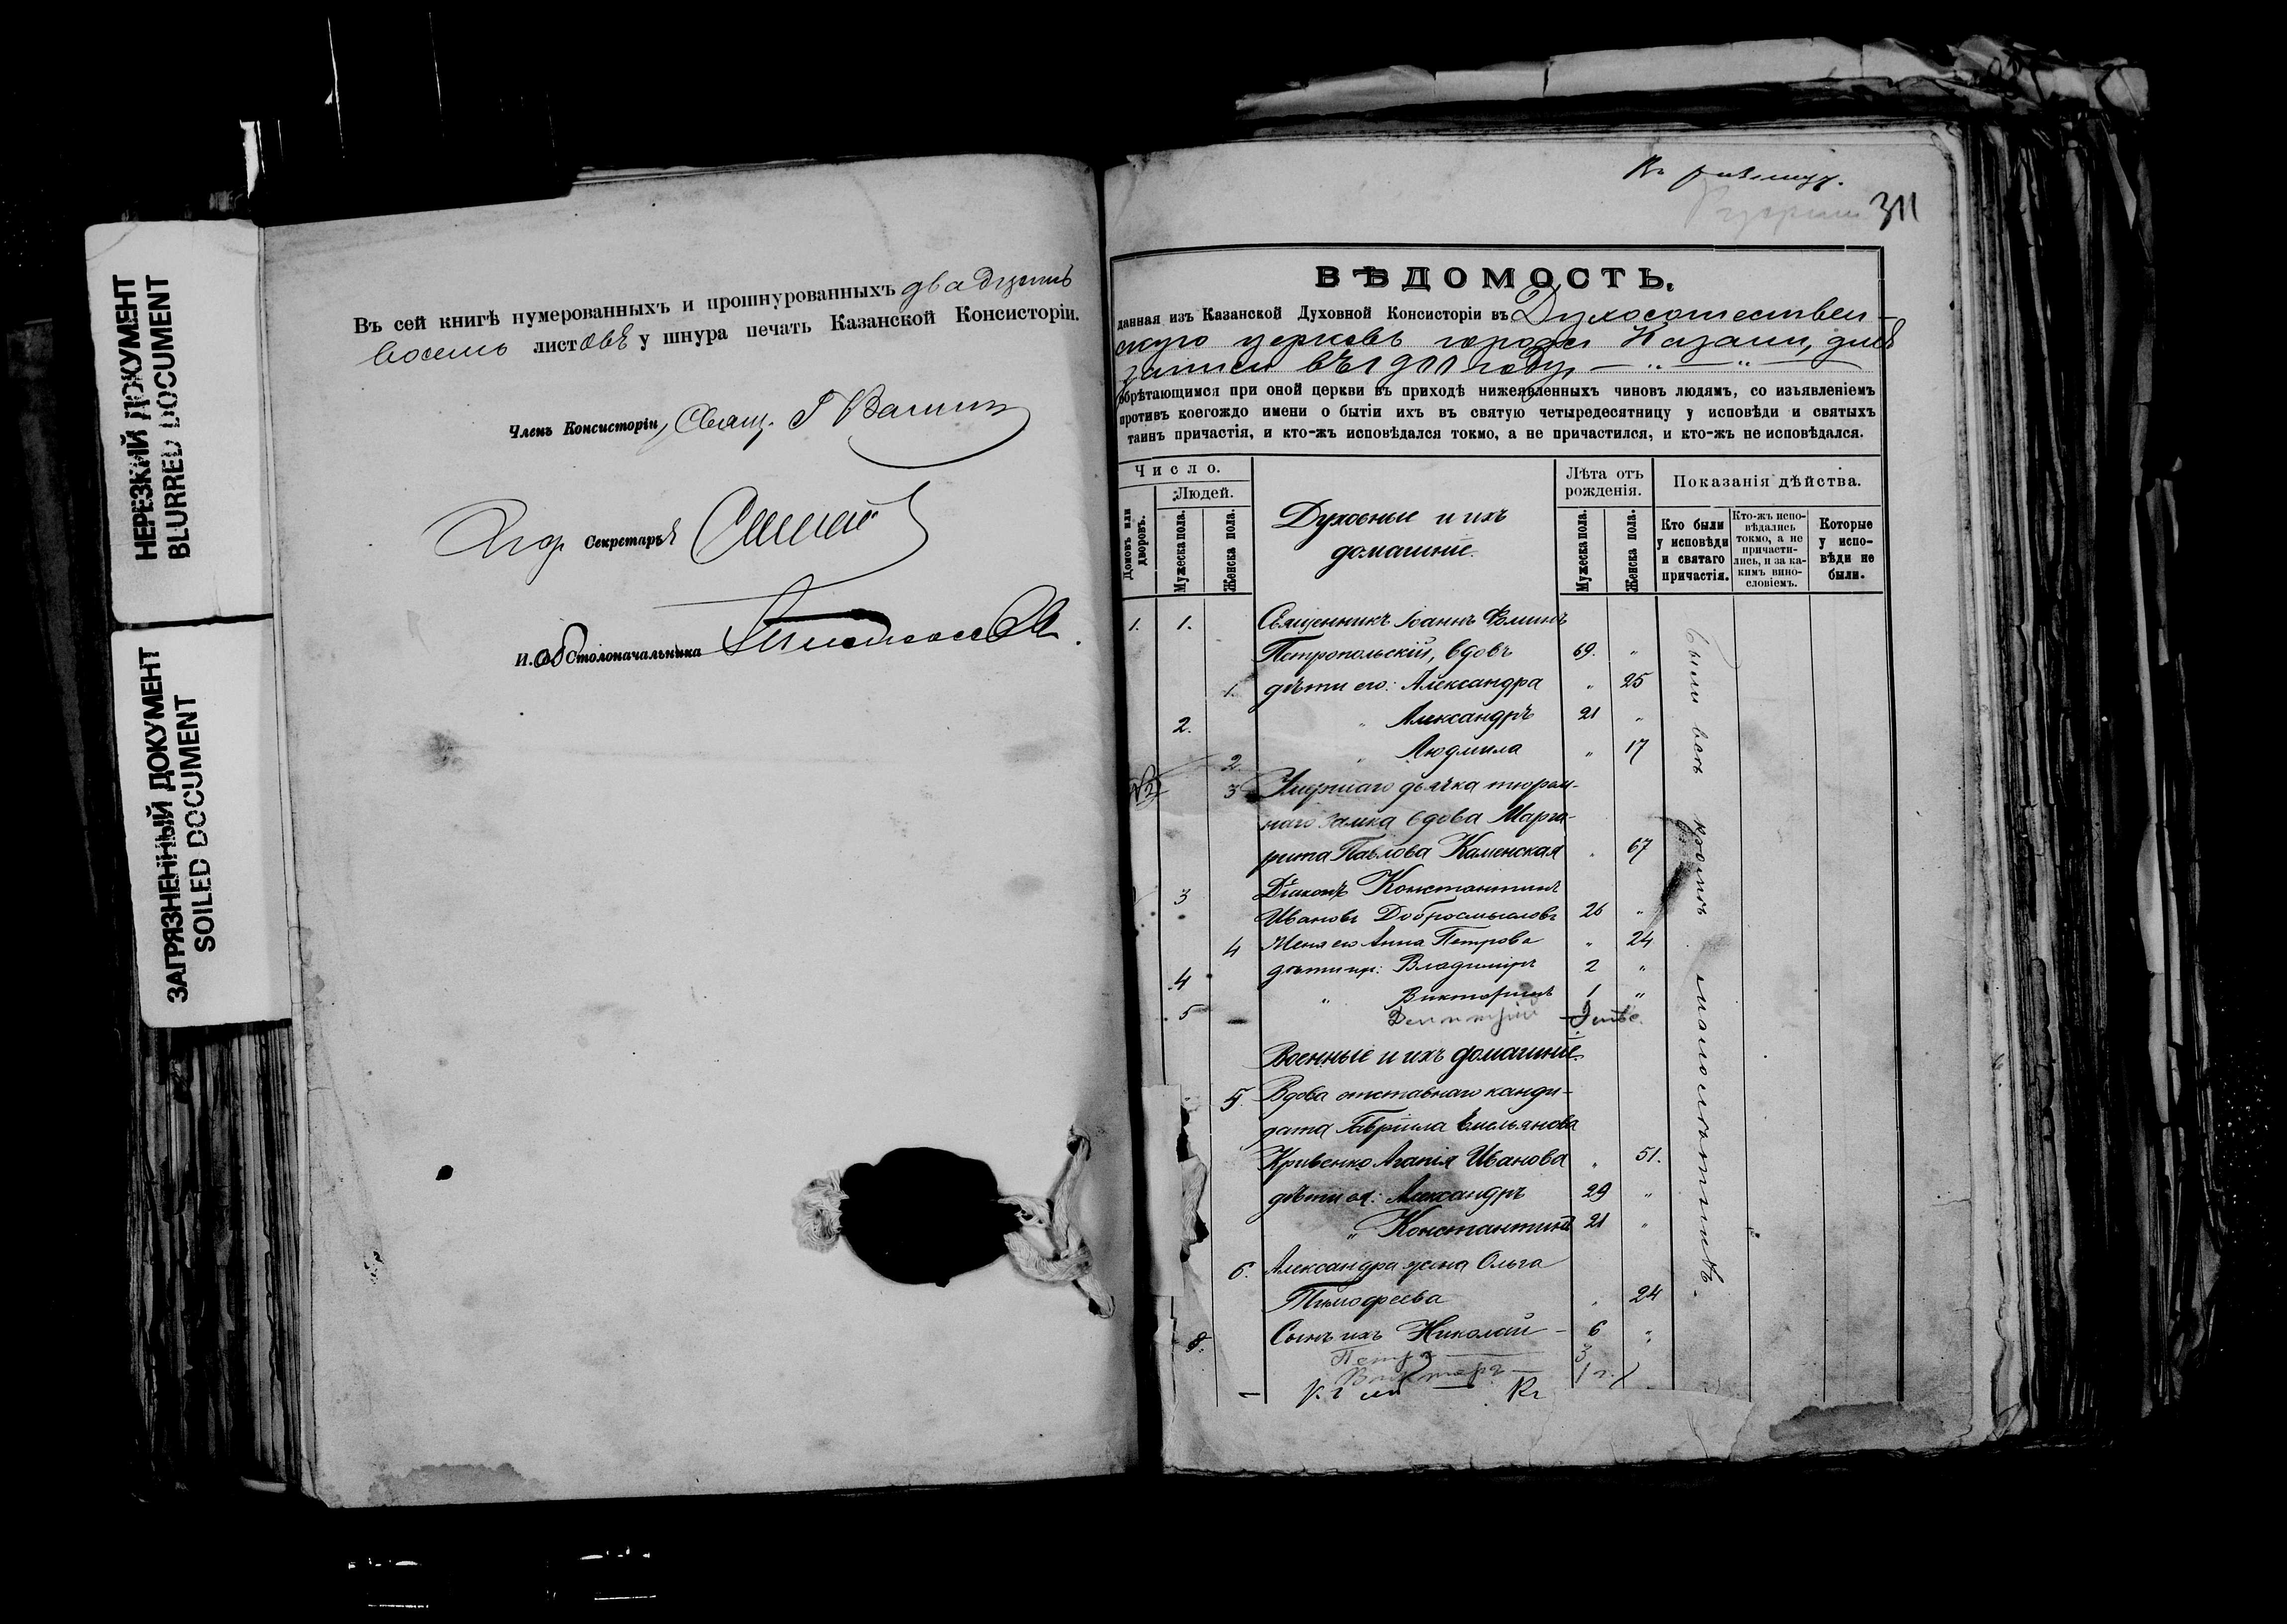 НЕРЕЗКИЙ ДОКУМЕНТ
BLURRED DOCUMENT
ЗАГРЯЗНЕННЫЙ ДОКУМЕНТ
SOILED DOCUMENT
Въ сей книгѣ нумерованныхъ и прошнурованныхъ двадцать
восемь листовъ у шнура печать Казанской Консисторіи.
Членъ Консисторіи, Свящ.
Секретарь
И. об Столоначальника
311
ВѢДОМОСТЬ,
данная изъ Казанской Духовной Консисторіи въ Духосошествен-
скую церковь города Казани, для
записи въ 1911 году
обрѣтающимся при оной церкви въ приходѣ нижеявленныхъ чиновъ людямъ, со изъявленіемъ
противъ коегождо имени о бытіи ихъ въ святую четыредесятницу у исповѣди и святыхъ
таинъ причастія, и кто-жъ исповѣдался токмо, а не причастился, и кто-жъ не исповѣдался.
Число.
Людей.
Домовъ или дворовъ.
Мужеска пола.
Женска пола.
Духовные и ихъ
домашніе.
Лѣта отъ
рожденія.
Мужеска пола.
Женска пола.
Показанія дѣйства.
Кто были
у исповѣди
и святаго
причастія.
Кто-жъ испо-
вѣдались
токмо, а не
причасти-
лись, и за ка-
кимъ вино-
словіемъ.
Которые
у испо-
вѣди не
были.
1. 1. Священникъ Іоаннъ Ѳоминъ
Петропольскій, вдовъ 69. "
1. дѣти его: Александра " 25
2. " Александръ 21 "
2. " Людмила " 17
3 Умершаго дьячка тюрем-
наго замка вдова Марга-
рита Павлова Каменская " 67
3 Діаконъ Константинъ
Ивановъ Добросмысловъ 26 "
4 Жена его Анна Петрова " 24
4 дѣти ихъ: Владиміръ 2 "
5 " Викторинъ 1 "
Димитрій
Военные и ихъ домашніе.
5. Вдова отставнаго канди-
дата Гавріила Емельянова
Кривенко Агапія Иванова " 51.
дѣти ея: Александръ 29 "
" Константинъ 21 "
6. Александра жена Ольга
Тимофеева " 24
8. Сынъ ихъ Николай - 6 "
Петръ 3
Викторъ 1 г.
были всѣ кромѣ малолѣтнихъ.